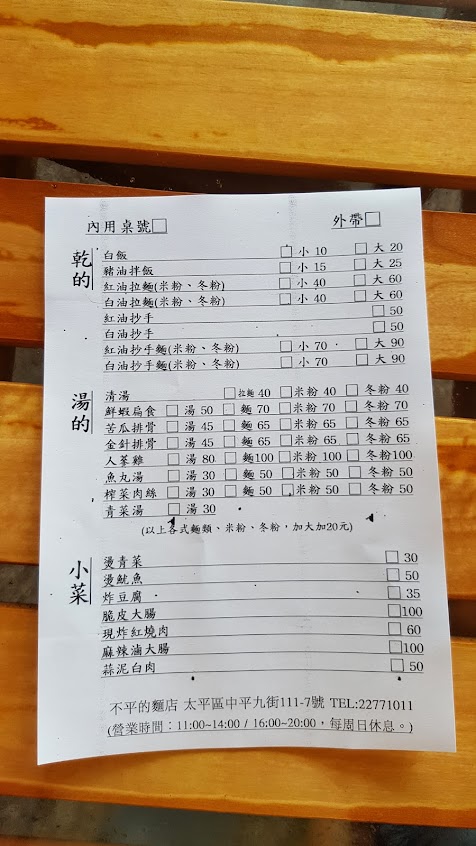 內用桌號□ 外帶□
乾的
白飯 □ 小 10 □ 大 20
豬油拌飯 □ 小 15 □ 大 25
紅油拉麵(米粉、冬粉) □ 小 40 □ 大 60
白油拉麵(米粉、冬粉) □ 小 40 □ 大 60
紅油抄手 □ 50
白油抄手 □ 50
紅油抄手麵(米粉、冬粉) □ 小 70 □ 大 90
白油抄手麵(米粉、冬粉) □ 小 70 □ 大 90
湯的
清湯 □ 拉麵 40 □米粉 40 □ 冬粉 40
鮮蝦扁食 □ 湯 50 □ 麵 70 □米粉 70 □ 冬粉 70
苦瓜排骨 □ 湯 45 □ 麵 65 □米粉 65 □ 冬粉 65
金針排骨 □ 湯 45 □ 麵 65 □米粉 65 □ 冬粉 65
人蔘雞 □ 湯 80 □ 麵100 □米粉 100 □ 冬粉100
魚丸湯 □ 湯 30 □ 麵 50 □米粉 50 □ 冬粉 50
榨菜肉絲 □ 湯 30 □ 麵 50 □米粉 50 □ 冬粉 50
青菜湯 □ 湯 30
(以上各式麵類、米粉、冬粉，加大加20元)
小菜
燙青菜 □ 30
燙魷魚 □ 50
炸豆腐 □ 35
脆皮大腸 □100
現炸紅燒肉 □ 60
麻辣滷大腸 □100
蒜泥白肉 □ 50
不平的麵店 太平區中平九街111-7號 TEL:22771011
(營業時間：11:00~14:00 / 16:00~20:00，每周日休息。)